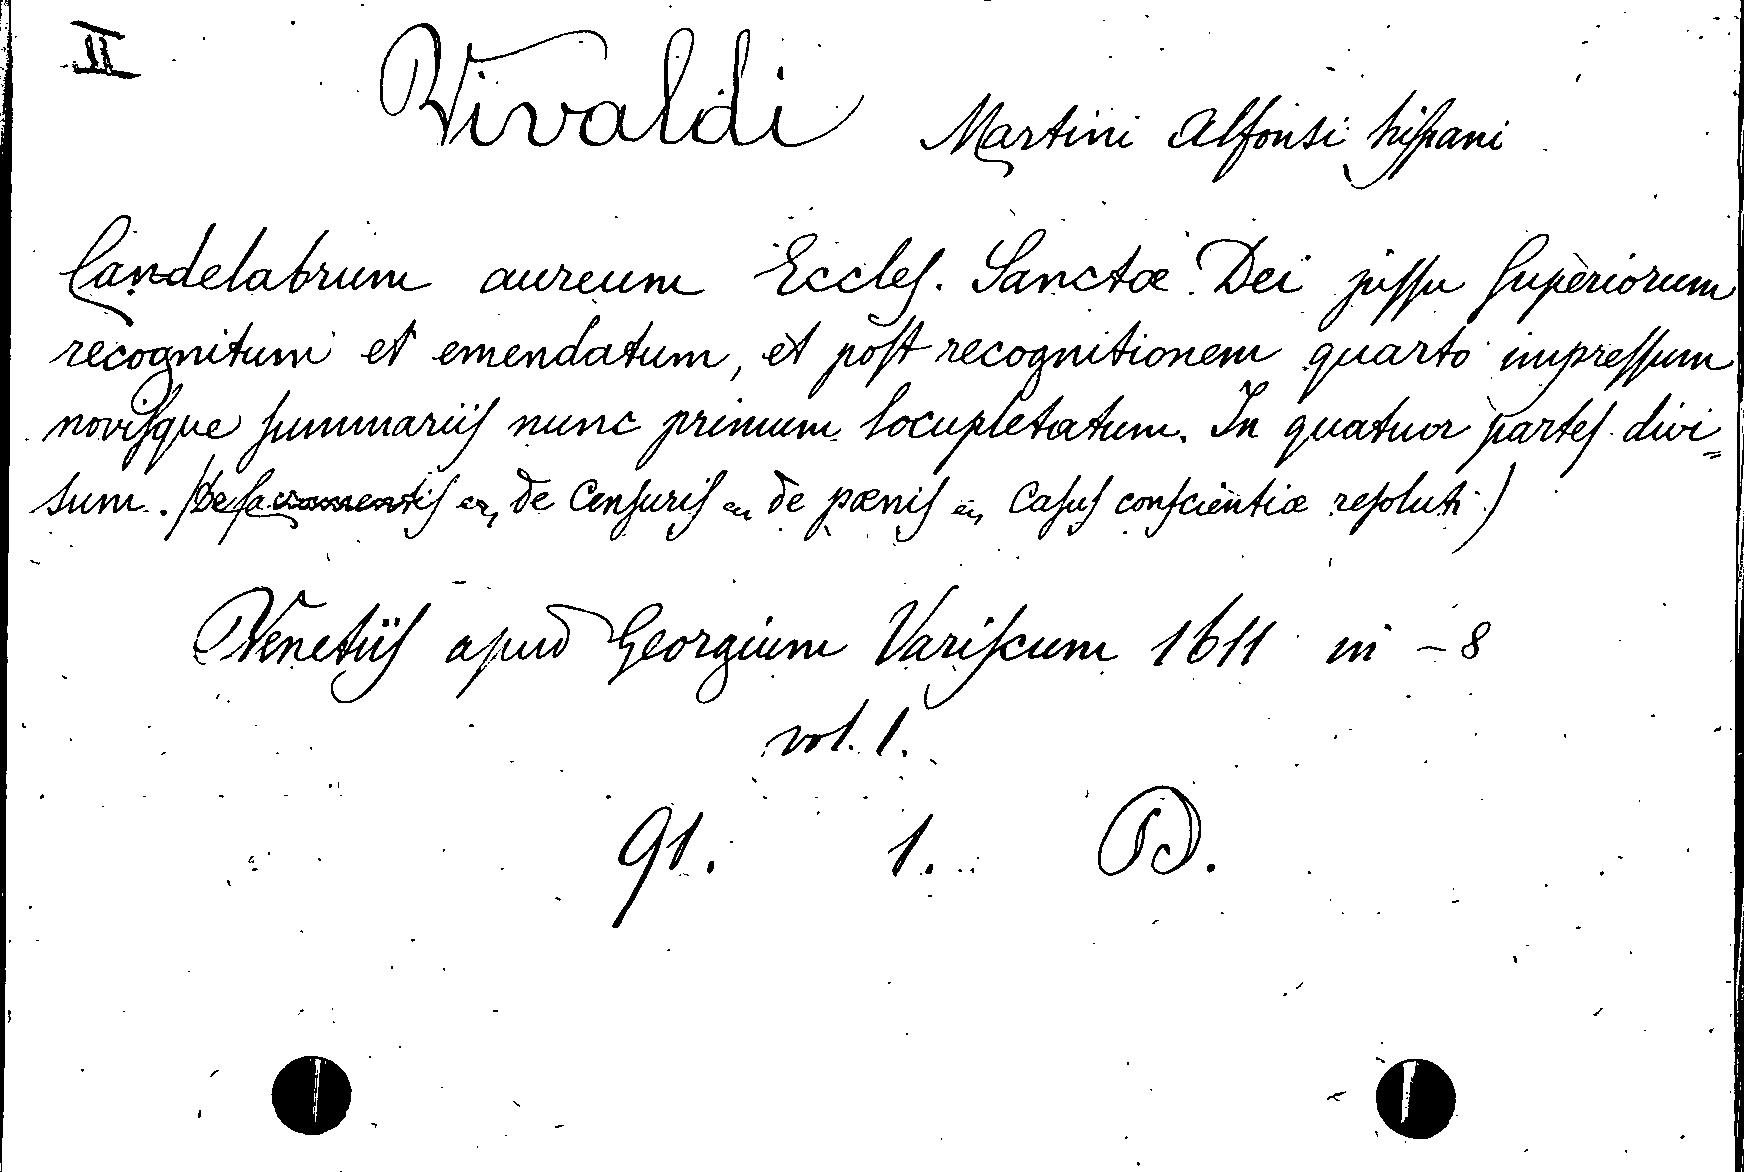 II
Vivaldi Martini Alfonsi hispani
Candelabrum aureum Eccles. Sanctæ Dei jussu superiorum
recognitum et emendatum, et post recognitionem quarto impressum
novisque summariis nunc primum locupletatum. In quatuor partes divi=
sum. (de sacramentis en, de censuris en de pœnis en, casus conscientiæ resoluti)
Venetiis apud Georgium Variscum 1611 in -8
vol. 1.
91. 1. D.